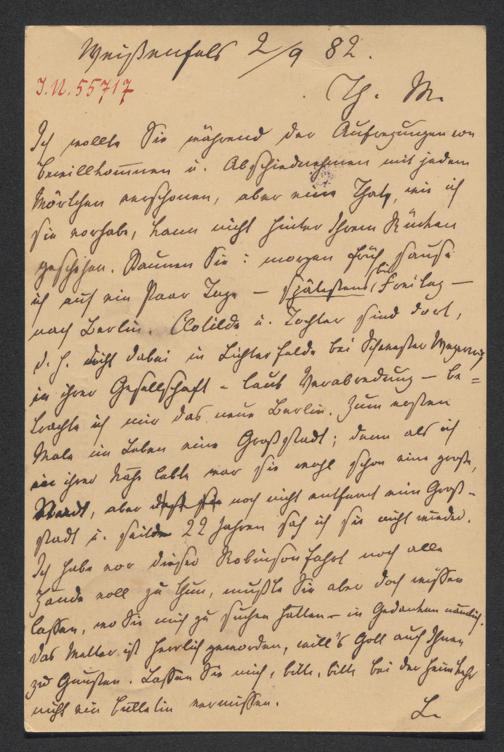 Weißenfels 2/9 82.
J.N. 55717
Th. M.
Ich wollte Sie während der Aufregungen von
Bewillkommen u. Abschiednehmen mit jedem
Wörtchen verschonen, aber eine That, wie ich
sie vorhabe, kann nicht hinter Ihrem Rücken
geschehen. Staunen Sie: morgen früh sause
ich auf ein Paar Tage – spätestens bis Freitag –
nach Berlin. Clotilde u. Tochter sind dort,
d. h. dicht dabei in Lichterfelde bei Schwester
in ihrer Gesellschaft – laut Verabredung – be=
trachte ich mir das neue Berlin. Zum ersten
Male im Leben eine Großstadt; denn als ich
in ihrer Nähe lebte war sie wohl schon eine große
Stadt, aber noch nicht entfernt eine Groß-
stadt u. seit 22 Jahren sah ich sie nicht wieder.
Ich habe vor dieser Robinsonfahrt noch alle
Hände voll zu thun, mußte Sie aber doch wissen
lassen, wo Sie mich zu suchen hätten – in Gedanken nämlich.
Das Wetter ist herrlich geworden, will's Gott auch Ihnen
zu Gunsten. Lassen Sie mich, bitte, bitte bei der Heimkehr
nicht ein Bulletin vermissen.
L.